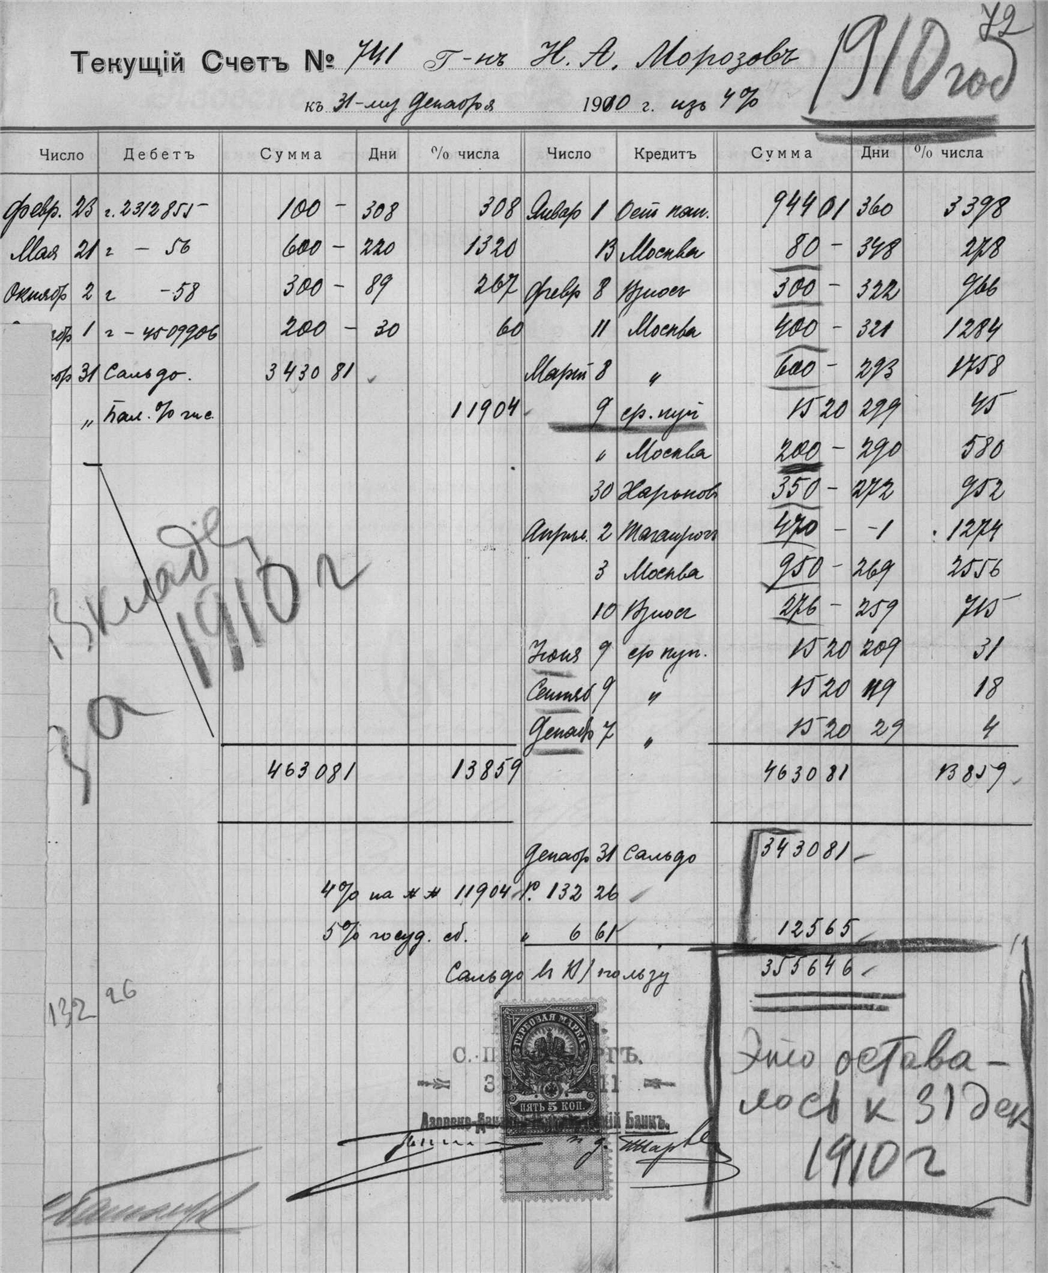 72
1910 год
Текущій Счетъ № 741 Г-нъ Н. А. Морозовъ
къ 31-му Декабря 1910 г. из 4%
Число Дебетъ Сумма Дни % числа Число Кредитъ Сумма Дни % числа
Февр. 23 г. 2312855 100 - 308 308 Январ 1 944 01 360 3398
Мая 21 г - 56 600 - 220 1320 13 Москва 80 - 348 278
Октябр 2 г - 58 300 - 89 267 Февр 8 Взносъ 300 - 322 966
1 г - 4509906 200 - 30 60 11 Москва 400 - 321 1284
31 Сальдо. 3430 81 Март 8 " 600 - 293 1758
" Бал. % чис. 11904 9 ср. куп 15 20 299 45
" Москва 200 - 290 580
30 Харьков 350 - 272 952
Апрля 2 Таганрогъ 470 - -1 1274
3 Москва 950 - 269 2556
10 Взносъ 276 - 259 715
Июня 9 ср куп. 15 20 209 31
Сентяб 9 " 15 20 119 18
Декабр 7 " 15 20 29 4
Вклады
за 1910 г
4630 81 13859 4630 81 13859
Декабр 31 Сальдо 3430 81
4% на № № 11904 Р. 132 26
5% госуд. сб. " 6 61 125 65
Сальдо в В/ пользу 3556 46
132 26
ГЕРБОВАЯ МАРКА
ПЯТЬ 5 КОП.
Азовско-Донской Коммерческій Банкъ.
Это остава-
лось к 31 дек
1910 г